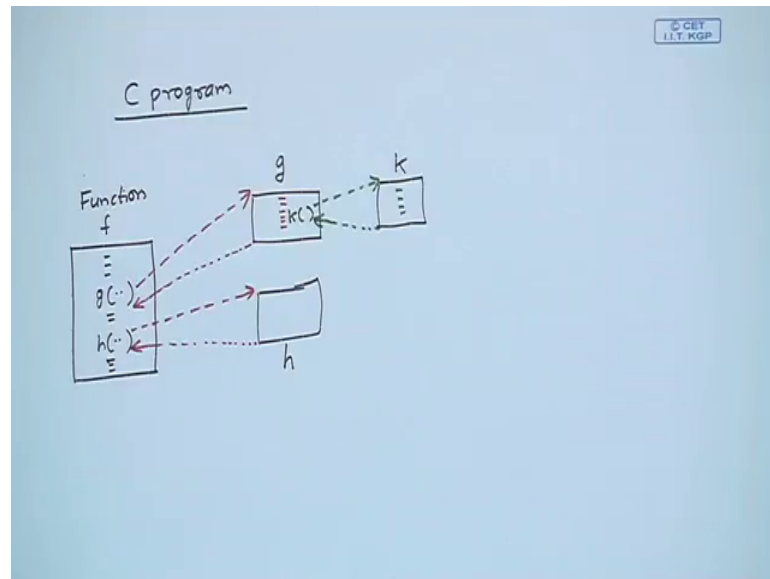 © CET
I.I.T. KGP
C program
Function
f
g(..)
h(..)
g
k()
k
h